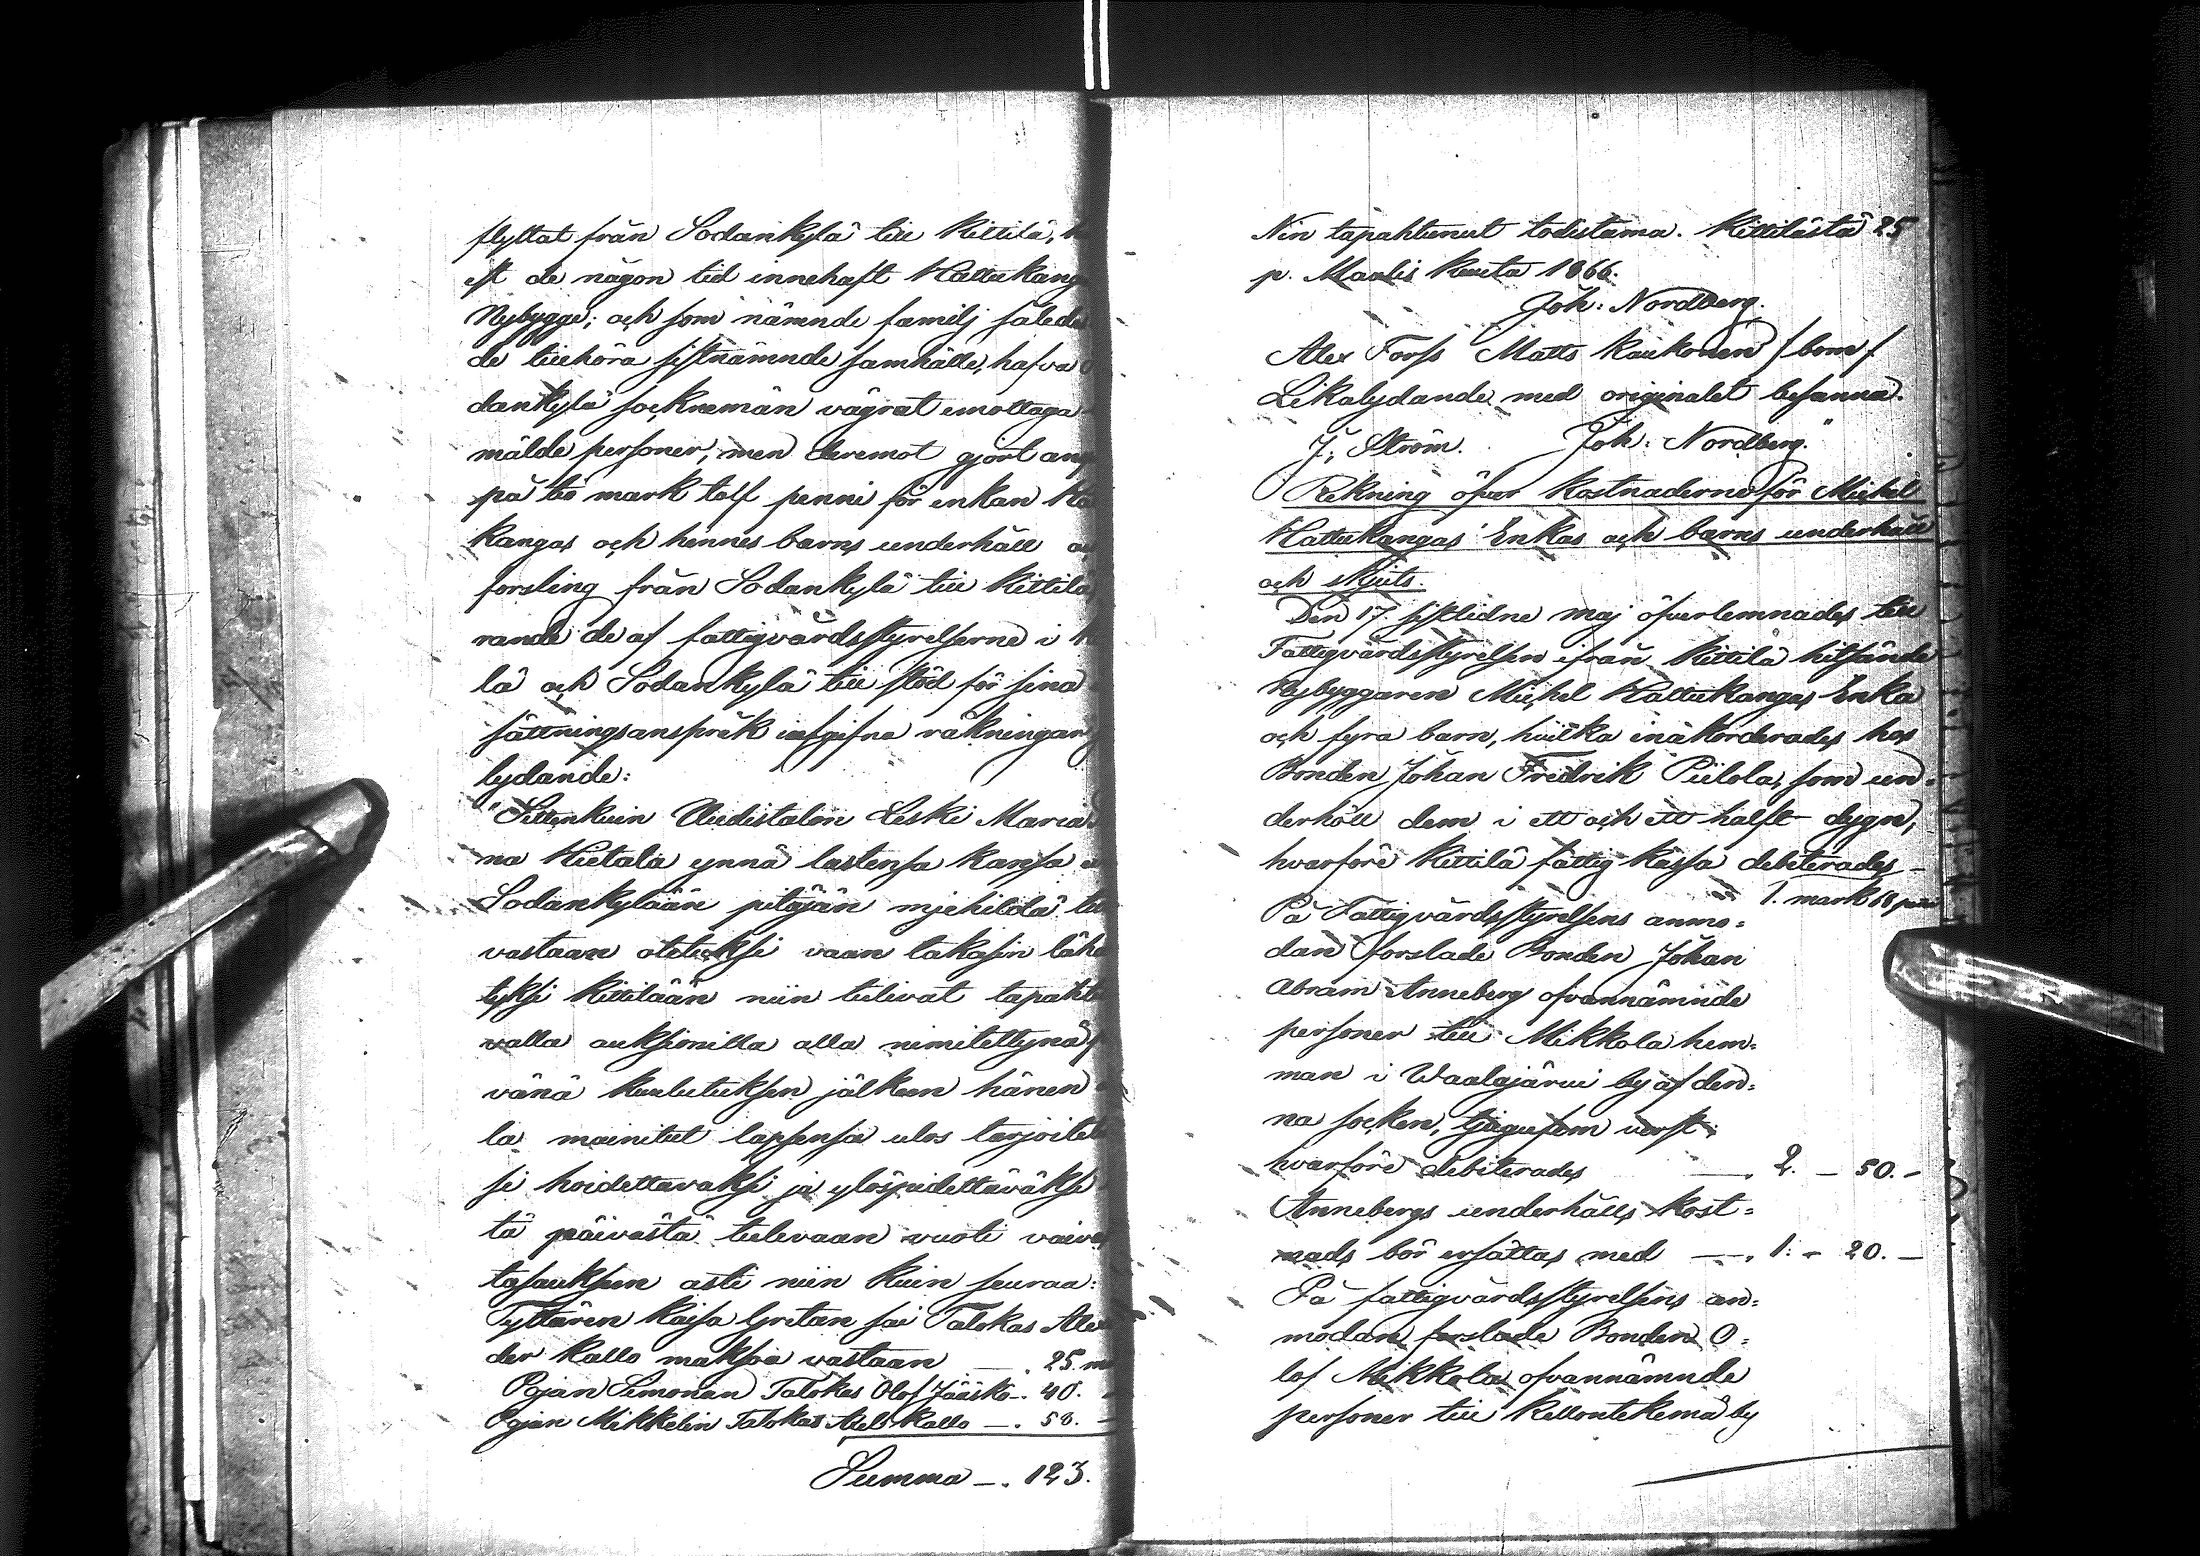 flyttat från Sodankylä till Kittilä,
est de någon tid innehaft Hattukang
Nybygge; och som nämnde familj således
de tillhöra sistnämnde samhälle, hafva
dankylä sockneman vägrat emottaga
mälde personer, men deremot gjort ansp
på tio mark tolf penni för enkan Ha
kangas och hennes barns underhåll oc
forsling från Sodankylä till Kittilä
rande de af fattigvårdsstyrelserne i
lä och Sodankylä till stöd för sina
sättningsanspråk infgifne räkningar
lydande:
"Sittenkuin Uudistalon Leski Maria
na Hietala ynnä lastensa kansa
Sodankylään pitäjän mjehildä tul
vastaan otetuksi vaan takasin lähe
tyksi Kittilään niin tulivat tapahtu
valla auksionilla alla nimitettynä
vänä kuulutuksen jälkeen hänen
la mainitut lapsensa ulos tarjoitet
si hoidettavaksi ja ylöspidettäväksi
tä päivästä tulevaan vuoti vaivas
tasauksen asti niin kuin seuraa:
Tyttären Kaisa Gretan sai Talokas Alex
der Kallo maksoa vastaan — . 25. m
Pojan Simonan Talokas Olof Jääskö —. 40.
Pojan Mikkelin Talokas Niels Kallo —. 58. —
Summa —. 123.
Nin tapahtunut todistama. Kittilästä 25
p. Maalis kuuta 1866.
Joh: Nordberg.
Alex Forss Matts Kaukonen /bom/
Likalydande med originalet besanna.
J. Ström. Joh: Nordberg."
Räkning öfver kostnaderne för Michel
Hattukangas' Enkas och barns underhåll
och skjuts.
Den 17. sistledne maj öfverlemnades till
Fattigvårdsstyrelsen ifrån Kittilä hitsände
Nybyggaren Michel Hattukangas Enka
och fyra barn, hvilka inakorderades hos
Bonden Johan Fredrik Piilola, som un=
derhöll dem i ett och ett halft dygn,
hvarföre Kittilä fattig kassa debiterades —
1. mark 68 pen
På Fattigvårdsstyrelsens anmo=
dan forslade Bonden Johan
Abram Anneberg ofvannämnde
personer till Mikkola hem=
man i Waalajärvi by af den=
na socken, tjugufem verst;
hvarföre debiterades —. 2. — 50. —
Annebergs underhålls kost=
nads bör ersättas med —. 1. — 20. —
På fattigvårdsstyrelsens an=
modan forslade Bonden O=
lof Mikkola ofvannämnde
personer till Kellontekemä by